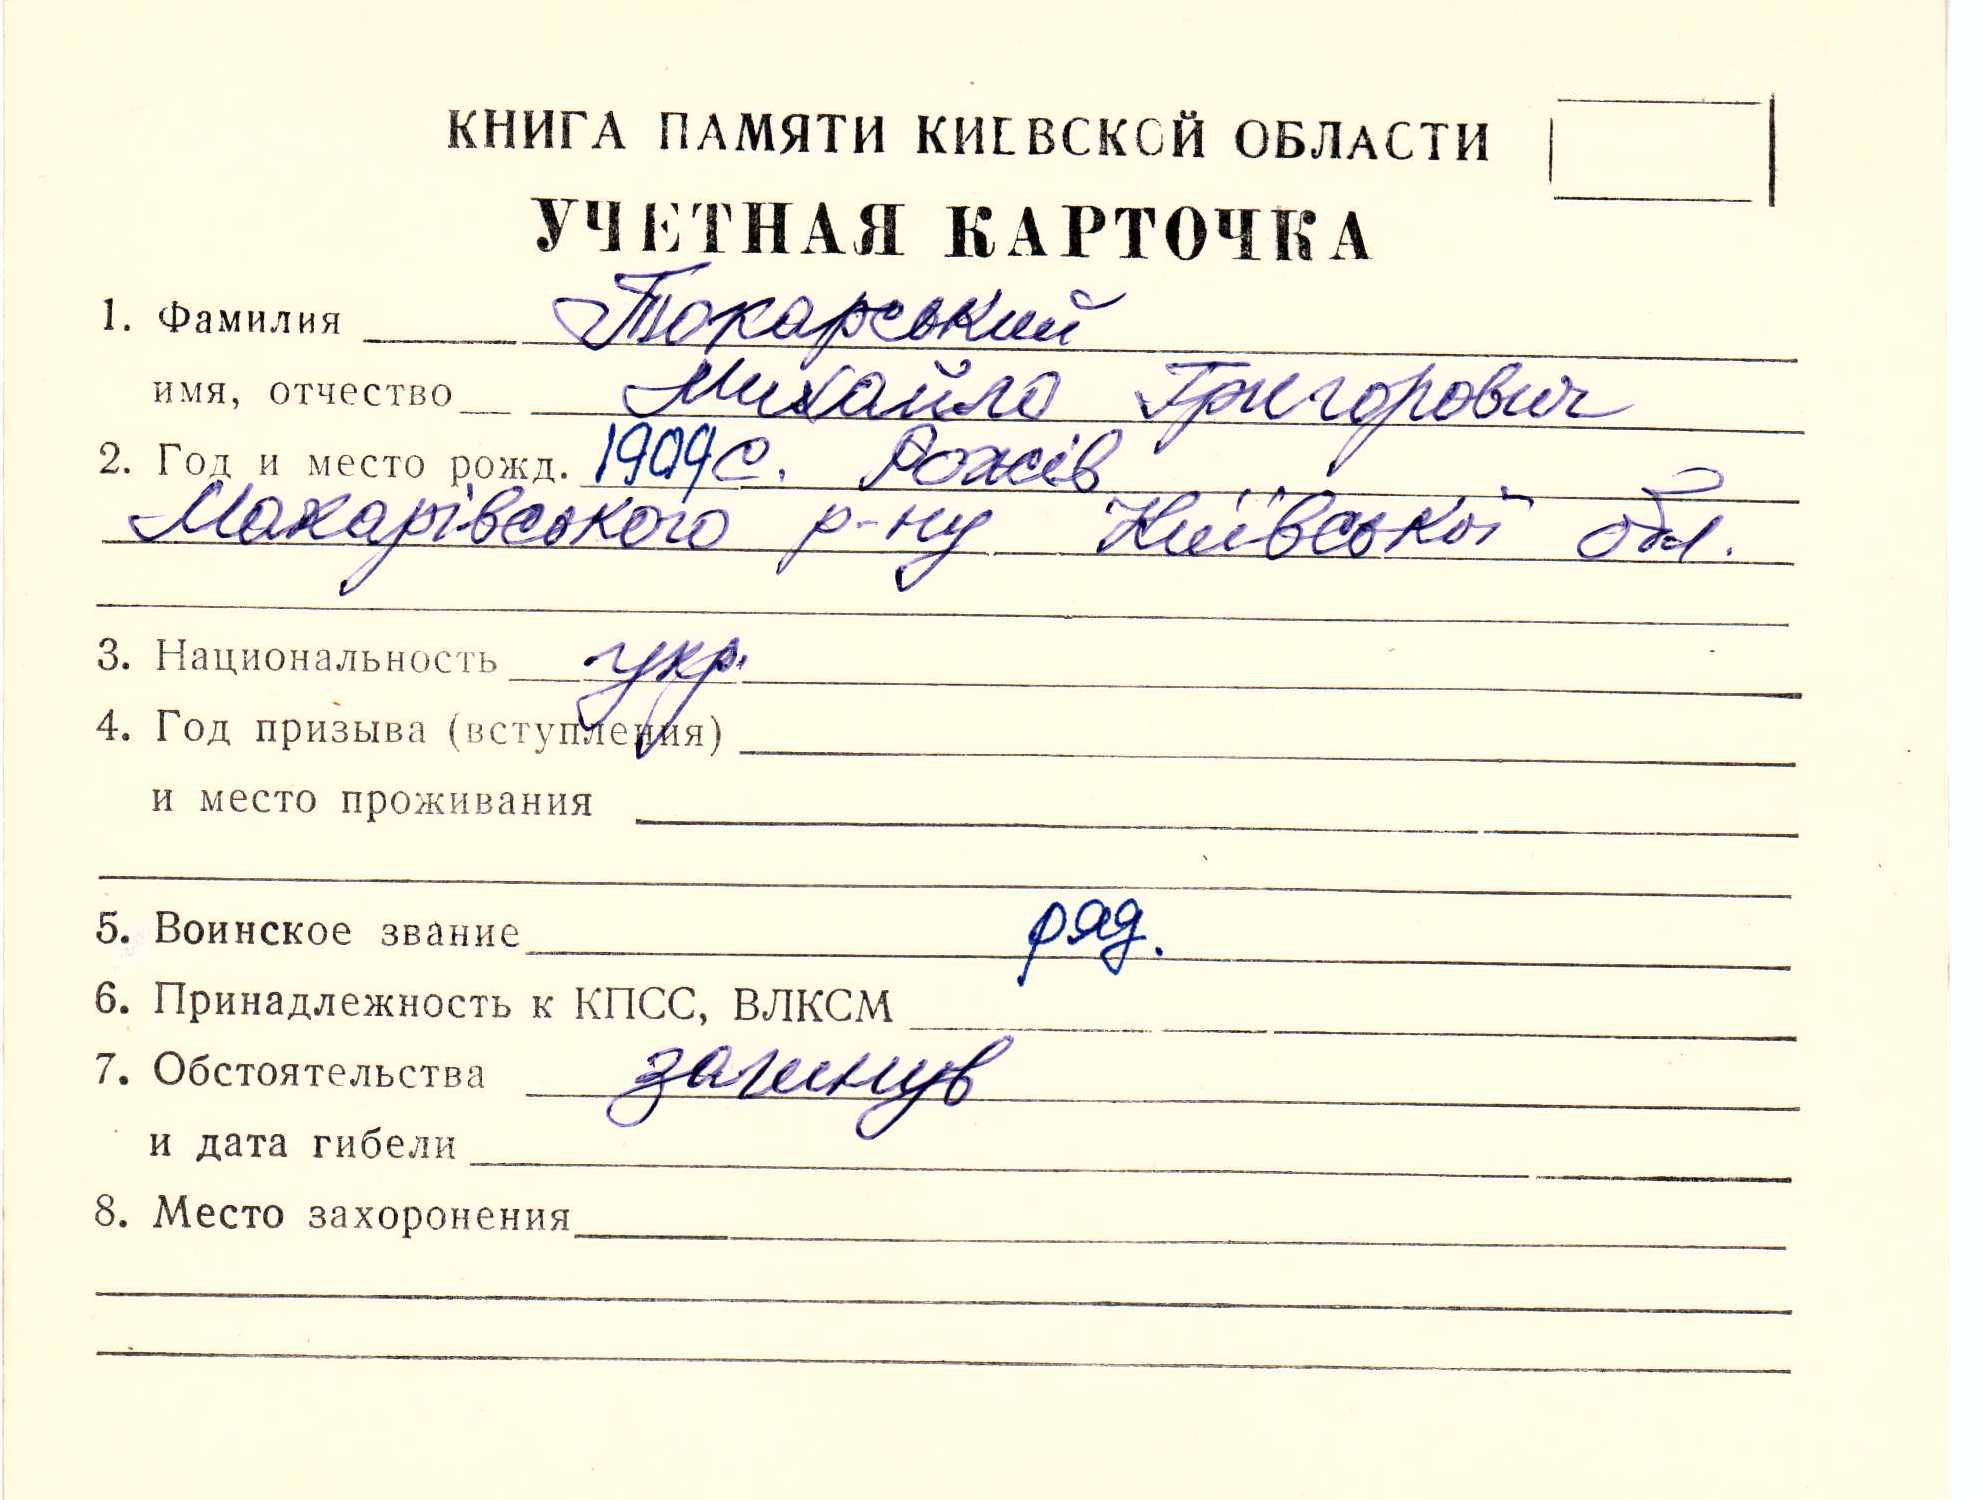 КНИГА ПАМЯТИ КИЕВСКОЙ ОБЛАСТИ
УЧЕТНАЯ КАРТОЧКА
1. Фамилия Токарський
имя, отчество Михайло Григорович
2. Год и место рожд. 1909 с. Рожів
Макарівського р-ну Київської обл.
3. Национальность укр.
4. Год призыва (вступления)
и место проживания
5. Воинское звание ряд.
6. Принадлежность к КПСС, ВЛКСМ
7. Обстоятельства загинув
и дата гибели
8. Место захоронения